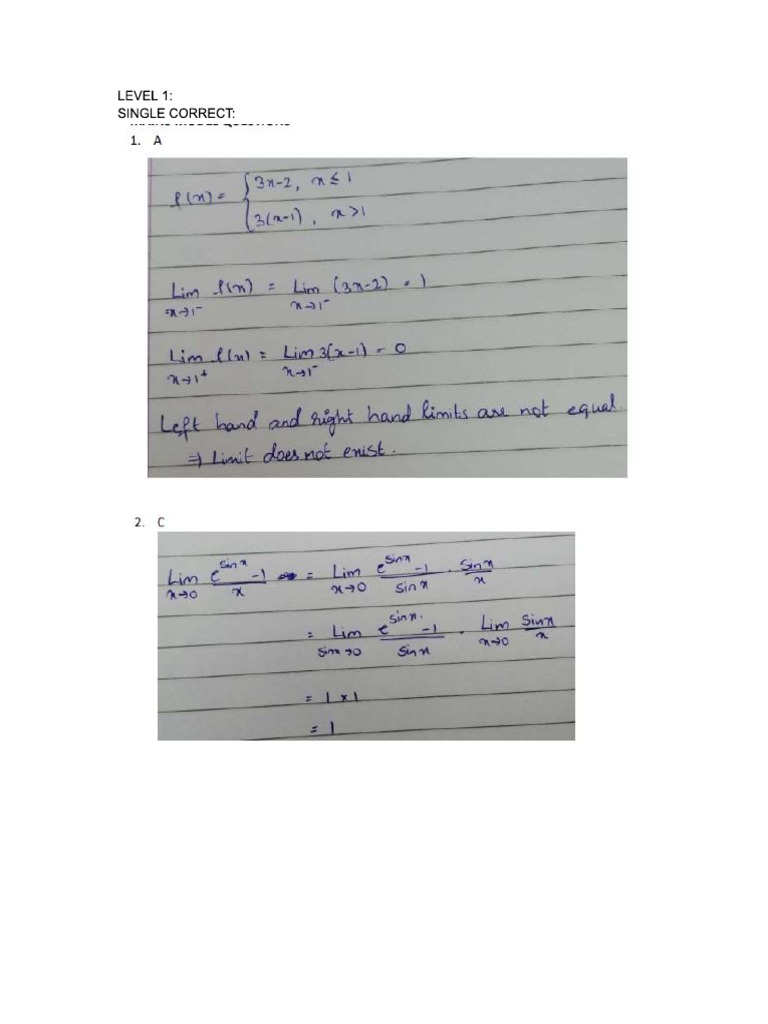 LEVEL 1:
SINGLE CORRECT:
1. A
f(x) = { 3x-2, x ≤ 1
3(x-1), x > 1
Lim x→1⁻ f(x) = Lim x→1⁻ (3x-2) = 1
Lim x→1⁺ f(x) = Lim x→1⁻ 3(x-1) = 0
Left hand and right hand limits are not equal.
⇒ Limit does not exist.
2. C
Lim x→0 (e^sinx -1)/x = Lim x→0 (e^sinx -1)/sinx . sinx/x
= Lim sinx→0 (e^sinx -1)/sinx . Lim x→0 sinx/x
= 1 × 1
= 1